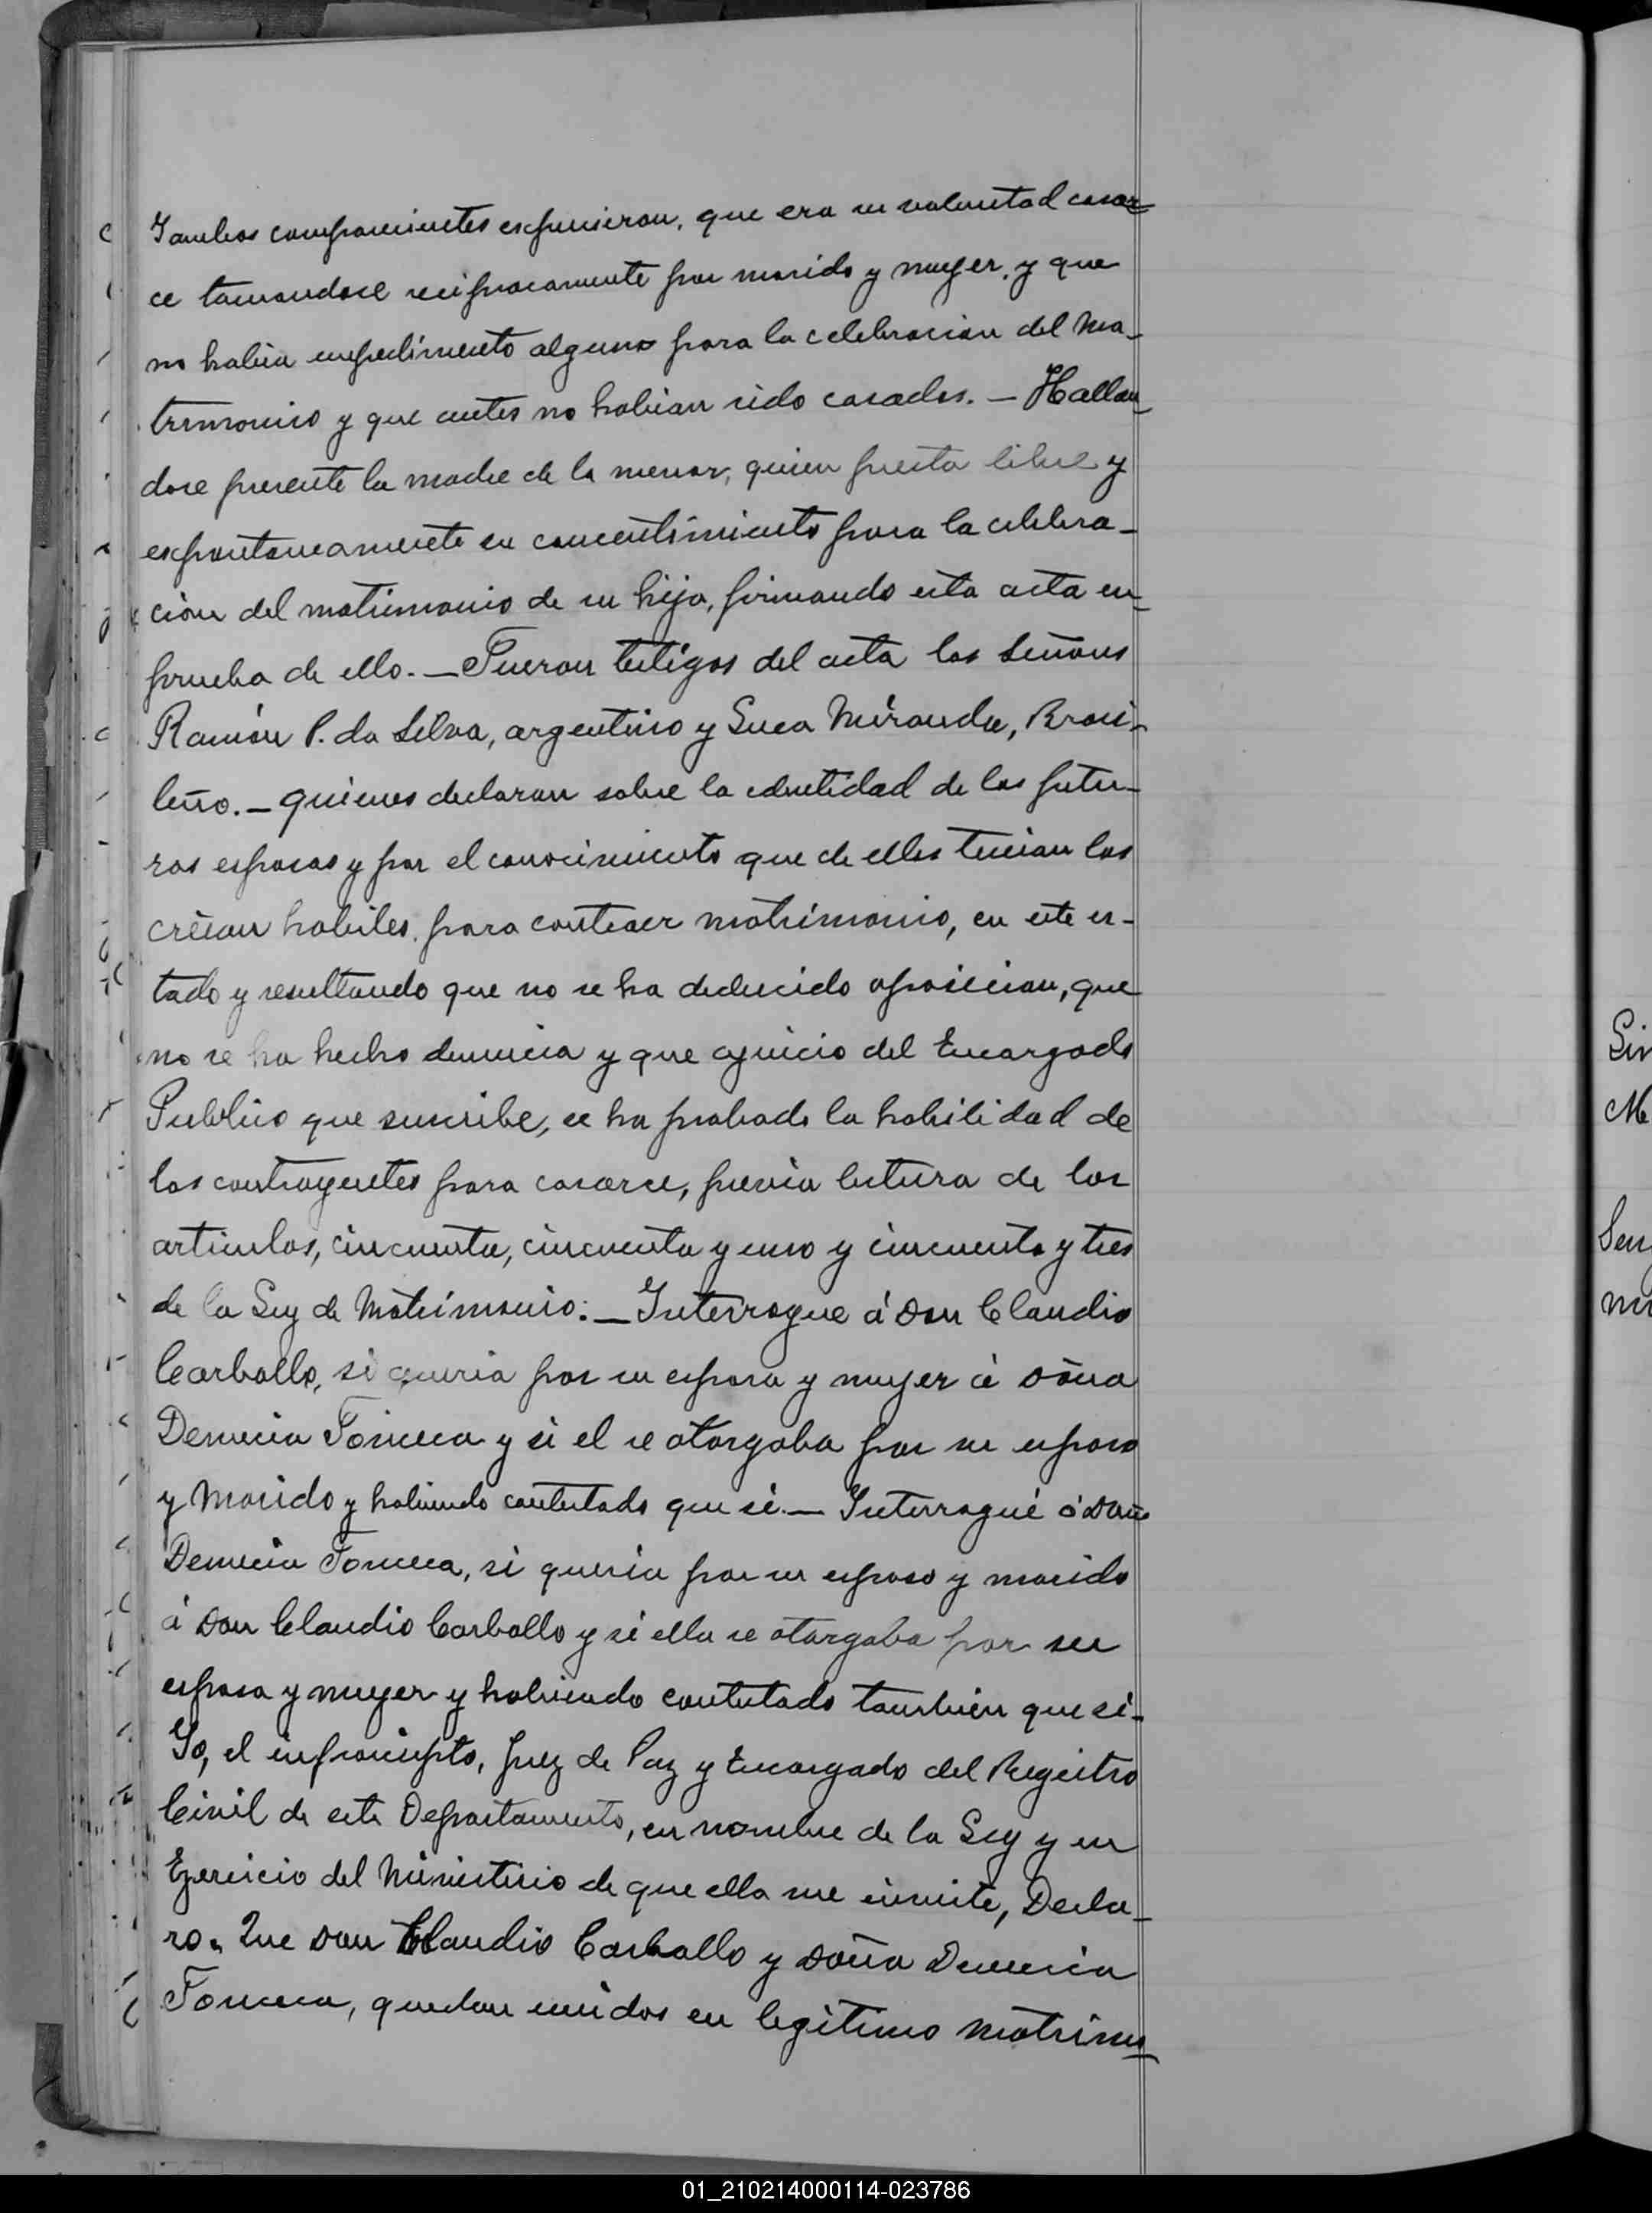 Yambos comparecientes espusieron, que era su voluntad casar
ce tomandose reciprocamente por marido y muger, y que
no habia impedimento alguno para la celebracion del Ma-
trimonio y que antes no habian sido casados. — Hallan
dose presente la madre de la menor, quien presta libre y
espontaneamente su concentimiento para la celebra-
ción del matrimonio de su hija, firmando esta acta en
prueba de ello. — Fueron testigos del acta los Señores
Ramón P. da Silva, argentino y Luca Miranda, Brasi-
leño. — quienes declaran sobre la identidad de los futu-
ros esposos y por el conocimiento que de ellos tenian los
creian habiles para contraer matrimonio, en este es-
tado y resultando que no se ha deducido oposicion, que
no se ha hecho denuncia y que ajuicio del Encargado
Publico que suscribe, se ha probado la habilidad de
los contrayentes para casarse, previa lectura de los
articulos, cincuenta, cincuenta y uno y cincuenta y tres
de la Ley de Matrimonio: — Interrogue á Don Claudio
Carballo, si queria por su esposa y muger á Doña
Demecia Fonceca y si el se otorgaba por su esposo
y Marido y habiendo contestado que si. — Interrogué á Doña
Demecia Fonceca, si queria por su esposo y marido
á Don Claudio Carballo y si ella se otorgaba por su
esposa y muger y habiendo contestado tambien que si-
Yo, el infrascripto, Juez de Paz y Encargado del Registro
Civil de este Departamento, en nombre de la Ley y en
Ejercicio del Ministerio de que ella me inviste, Decla-
ro. Que Don Claudio Carballo y Doña Demecia
Fonceca, quedan unidos en legitimo matrimo
Sin
Me
Sen
01_210214000114-023786